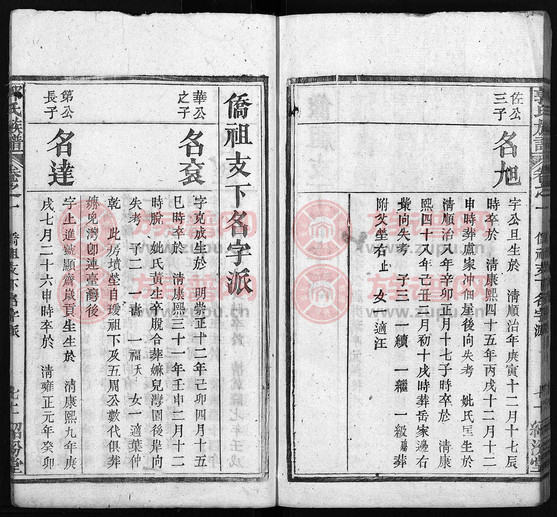 佐公
三子
名旭
字公旦生於 清順治年庚寅十二月十七辰
時卒於 清康熙四十五年丙戌十二月二十
申時葬盧家冲個屋後向失考 妣氏 生於
清順治八年辛丑正月十七子時卒於 清康
熙四十八年己丑三月初十戌時葬岳家邊右
向失考 子三 一續 一繼 一緞
附父塋右止 女一適汪
僑祖支下名字派
華公
之子
名袞
字克成生於 明崇正十二年己卯四月十五
巳時卒於 清康熙三十一年壬申二月十二
時脫 妣氏黃生卒脫合葬嫲兒灣園後坐向
失考 子二 一壽 一福夭 女一適葉仲
乾 此房墳塋自璦祖下及五周公數代俱葬
嫲兒灣即連臺灣後
第公
長子
名達
字上進號顯齋歲貢生生於 清康熙九年庚
戌七月二十六申時卒於 清雍正元年癸卯
郭氏族譜
卷之一
僑祖支下名字派
七十一
紹汾堂